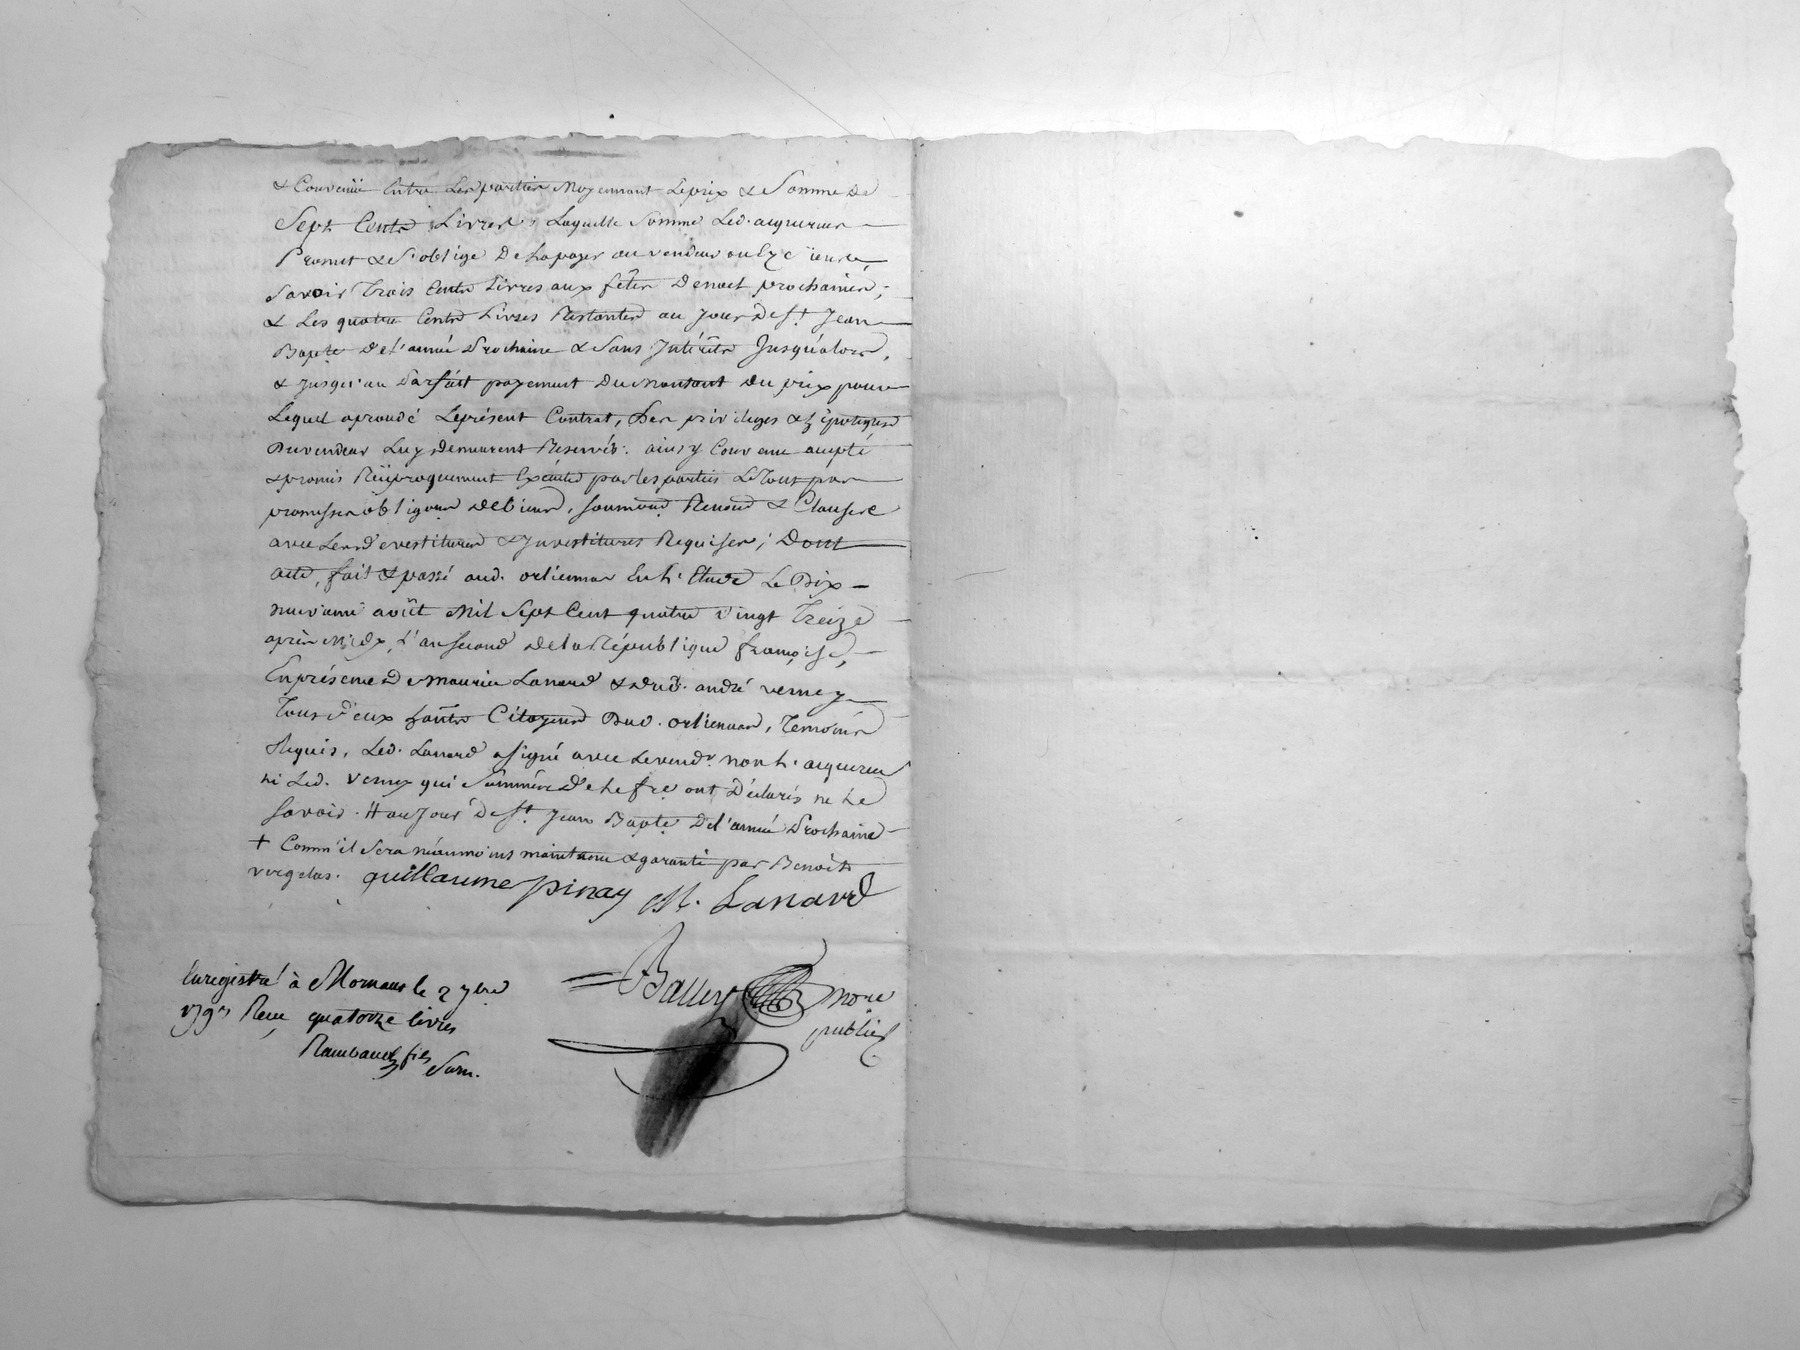 & Convenüe Entre Les parties Moyennant Le prix & Somme De
Sept Cents Livres, Laquelle Somme Led. acquereur
Promet & S'oblige De La payer au vendeur ou
Savoir Trois Cents Livres aux fêtes De noel prochaines;
& Les quatre Cents Livres Restantes au Jour De St. Jean
Bapte De l'année Prochaine & Sans Intérêts Jusqu'alors,
& Jusqu'au Parfait payement Du Montant Du prix pour
Lequel Le présent Contrat, Les privileges & hipoteques
Du vendeur Luy Demeurent Reservés: ainsy Convenu accepté
& promis Réciproquement Exécuter par les parties Le Tout par
promesses obligons De biens, Soumons Renons & Clauses
avec Les Devestitures & Investitures Requises; Dont
acte, fait & passé aud. orlienas En L'Etude Le Dix-
neuvieme août Mil Sept Cent quatre vingt Treize
après Midy, L'an Second De la République françoise,
En présence De Maurice Lanard & De andré verney
Tous Deux Citoyens Dud. orlienas, Temoins
Requis, Led. Lanard a signé avec Le vendr. non L'acquereur
ni Led. verney qui Sommés De Le fre ont Déclarés ne Le
Savoir. # au Jour De St. Jean Bapte De l'année Prochaine
+ Comm'il Sera néanmoins maintenu & garanti par Benoît
vergelas. guillaume pinay M. Lanard
Enregistré à Mornant le 2 7bre
Balley nore
1793 Reçu quatorze livres
public
Rambaud fils Surn.